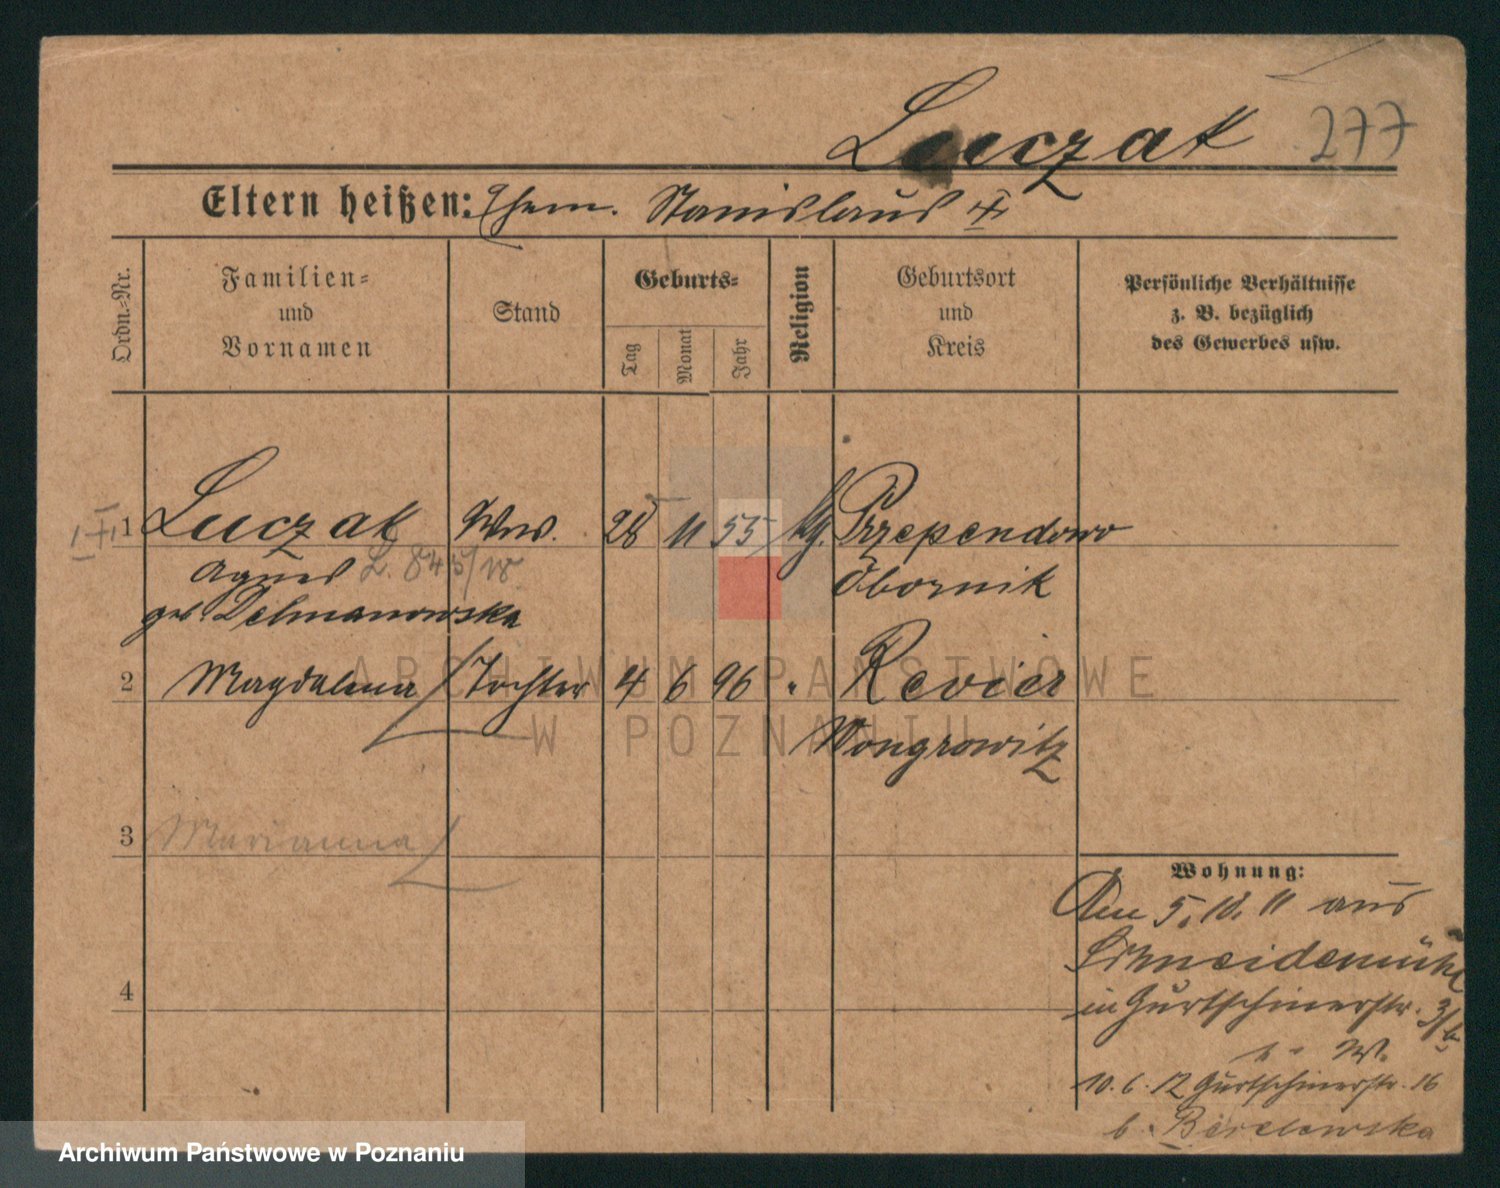 Luczak 277
Eltern heißen: Ehem. Stanislaus
Ordn.-Nr.
Familien- und Vornamen
Stand
Geburts-
Tag
Monat
Jahr
Religion
Geburtsort und Kreis
Persönliche Verhältnisse
z. B. bezüglich
des Gewerbes usw.
1 Luczak Ww. 28 11 55 kg. Przependowo
Agnes L. 845/18 Obornik
geb. Delmanowska
2 Magdalena Tochter 4 6 96 " Revier
Wongrowitz
3 Marianna
Wohnung:
Am 5. 10. 11 aus
Schneidemühl
in Gurtschinerstr. 3/b
b. W.
10. 6. 12 Gurtschinerstr. 16
b.
4
ARCHIWUM PAŃSTWOWE
W POZNANIU
Archiwum Państwowe w Poznaniu